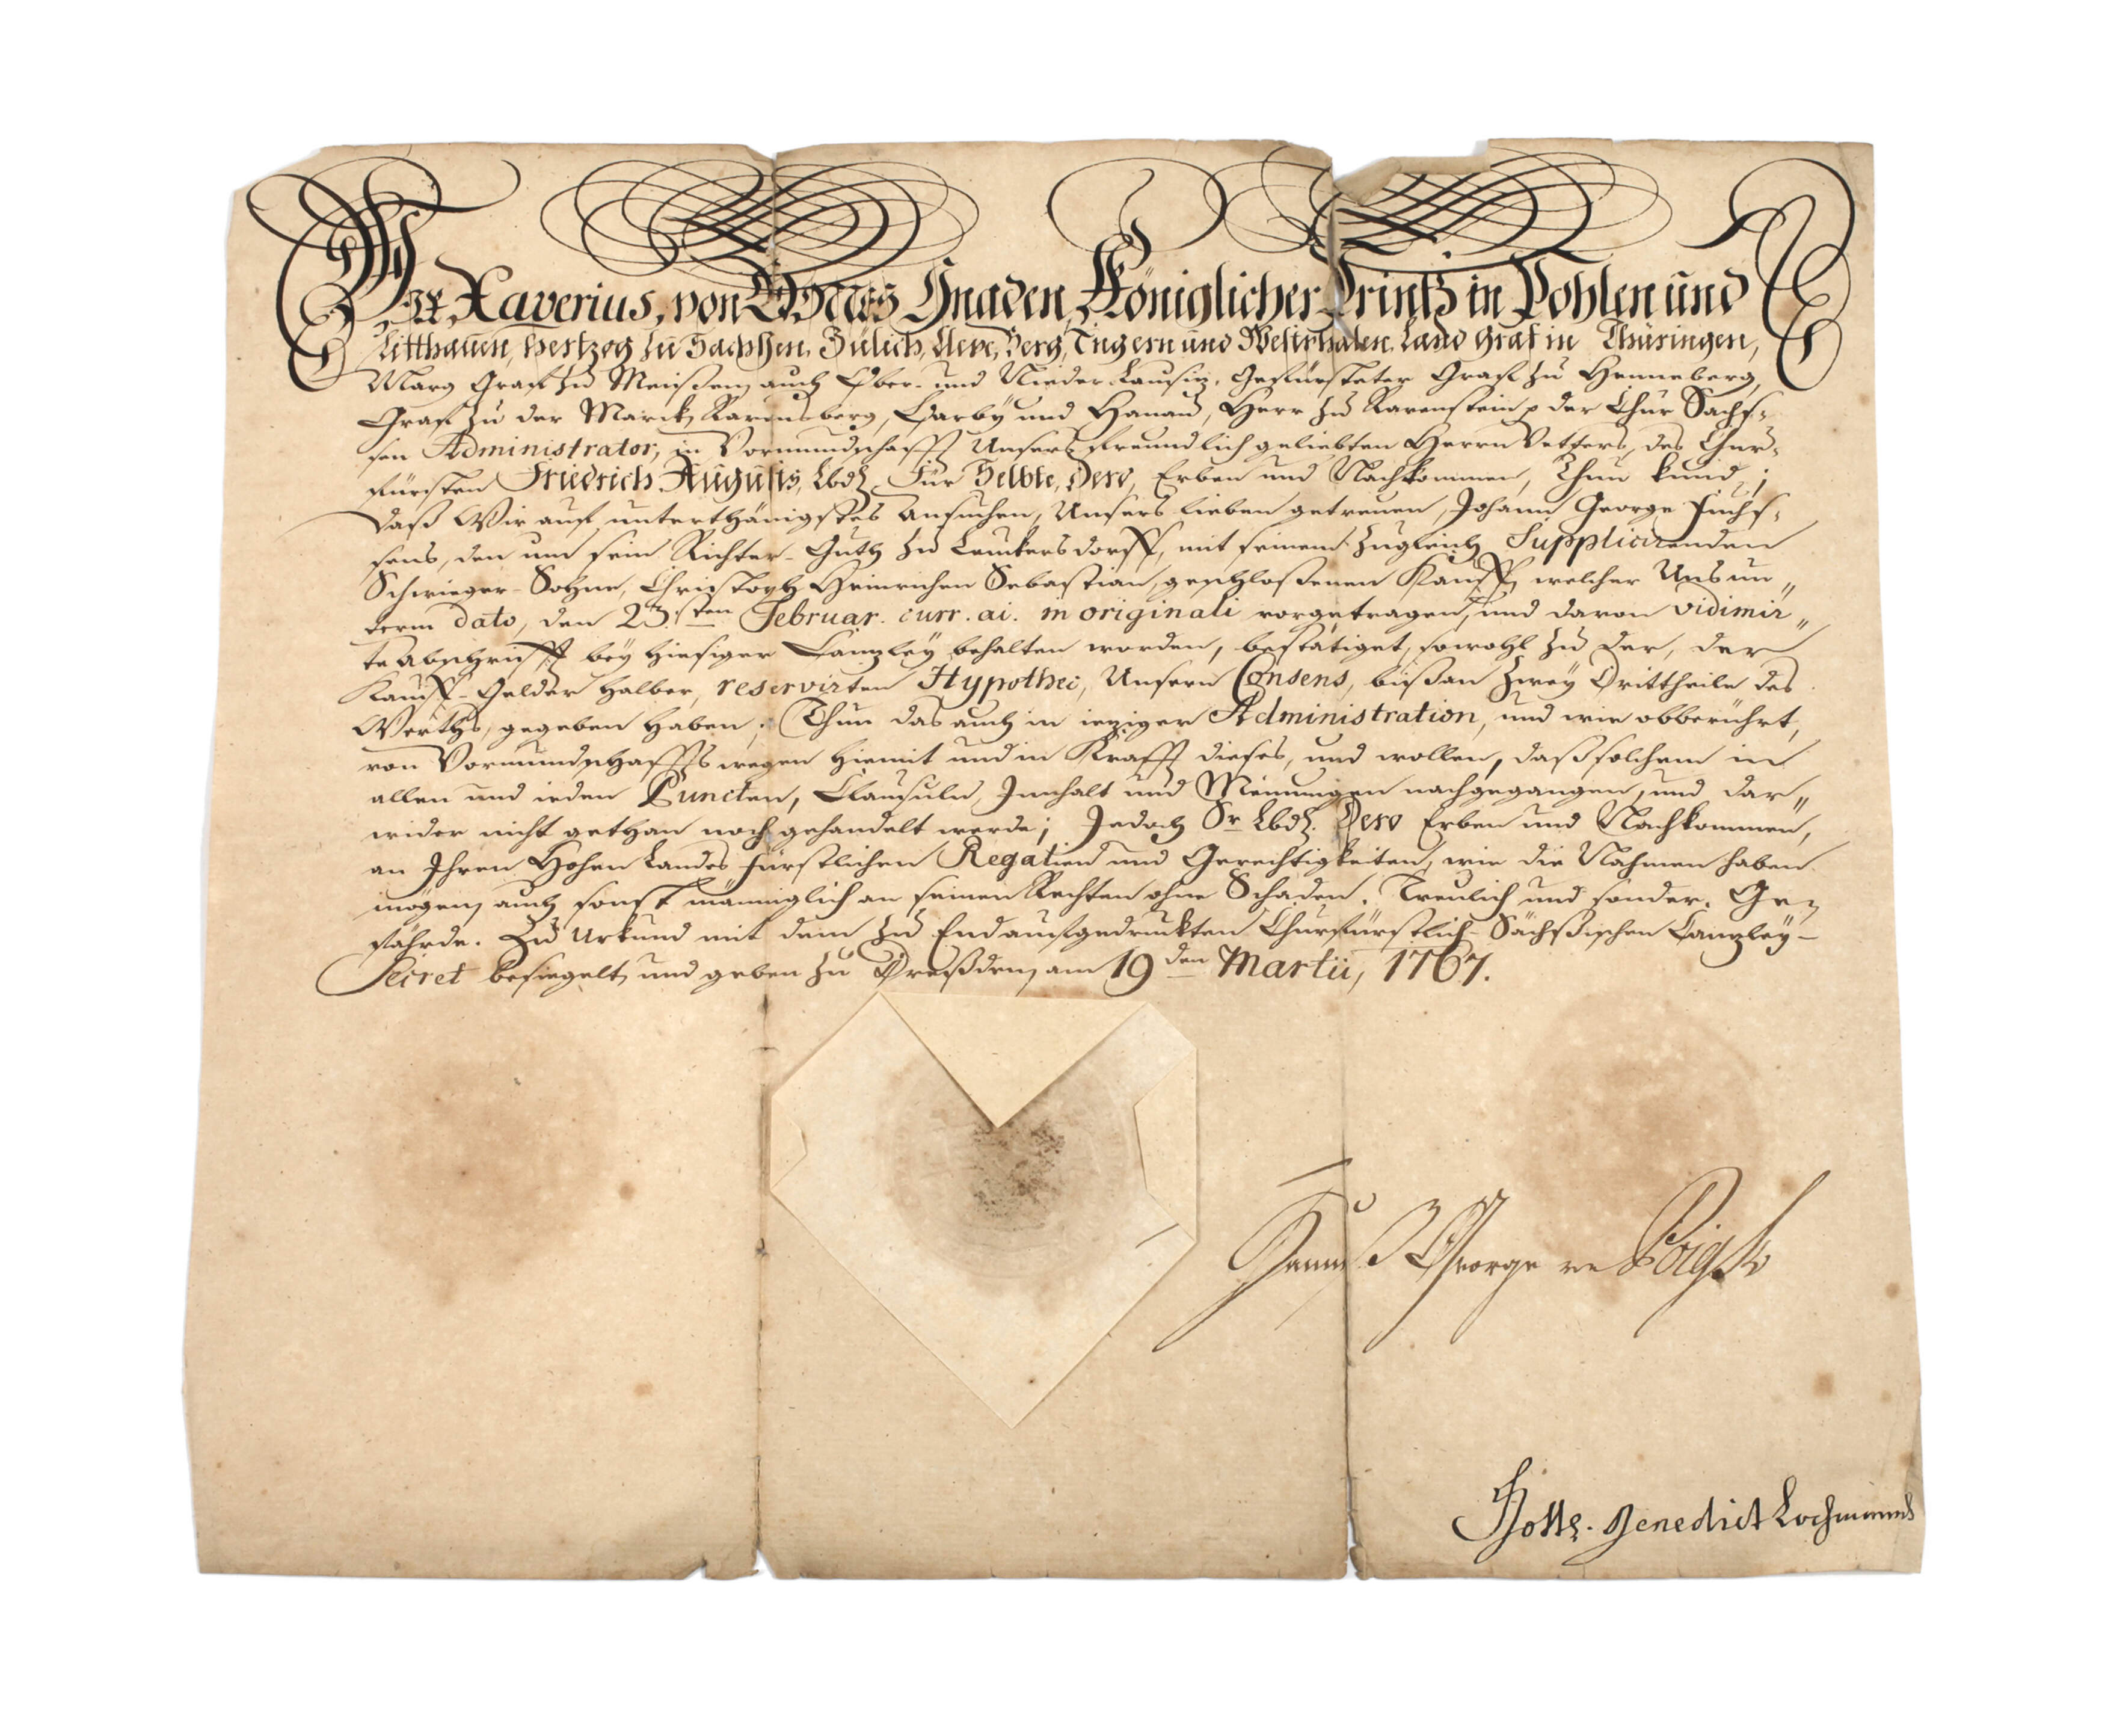 Wir, Xaverius, von GOTTES Gnaden, Königlicher Printz in Pohlen und
Litthauen, Hertzog zu Sachßen, Jülich, Cleve, Berg, Engern und Westphalen, Land Graf in Thüringen,
Marg Graf zu Meißen, auch Ober- und Nieder-Lausiz, Gefürsteter Graf zu Henneberg,
Graf zu der Marck, Ravensberg, Barbÿ und Hanau, Herr zu Ravenstein p der Chur Sachs-
sen Administrator, in Vormundschafft Unsers freundlich geliebten Herrn Vetters, des Chur-
fürsten Friedrich Augusts, Lbd. Für Selbte, Dero, Erben und Nachkommen, Thun kund,
daß Wir auf unterthänigstes Ansuchen, Unsers lieben getreuen, Johann George Fuchs-
sens, den um sein Richter-Guth zu Leukersdorff, mit seinem zugleich Supplicirenden
Schwieger-Sohne, Christoph Heinrichen Sebastian, geschloßenen Kauff, welcher Uns un„
term dato, den 23.sten Februar. curr. ai. in originali vorgetragen, und davon vidimir„
te Abschrifft beÿ hiesiger Canzleÿ behalten worden, bestätiget, sowohl zu der, der
Kauff-Gelder halber, reservirten Hypothec, Unsern Consens, bißan zweÿ Drittheile des
Werths, gegeben haben; Thun das auch in ieziger Administration, und wie obberührt,
von Vormundschaffts wegen hiemit und in Krafft dieses, und wollen, daß solchem in
allen und ieden Puncten, Clausuln, Innhalt und Meinungen nachgegangen, und dar„
wider nicht gethan noch gehandelt werde; Jedoch Sr Lbd. Dero Erben und Nachkommen,
an Ihren Hohen Landes Fürstlichen Regalien und Gerechtigkeiten, wie die Nahmen haben
mögen, auch sonst männiglich an seinen Rechten ohne Schaden. Treulich und sonder Ge-
fährde. Zu Urkund mit dem zu End aufgedruckten Churfürstlich-Sächßischen Canzleÿ-
Secret besiegelt, und geben zu Dreßden, am 19den Martii, 1767.
Hanns George
Gottl. Benedict Lochmann